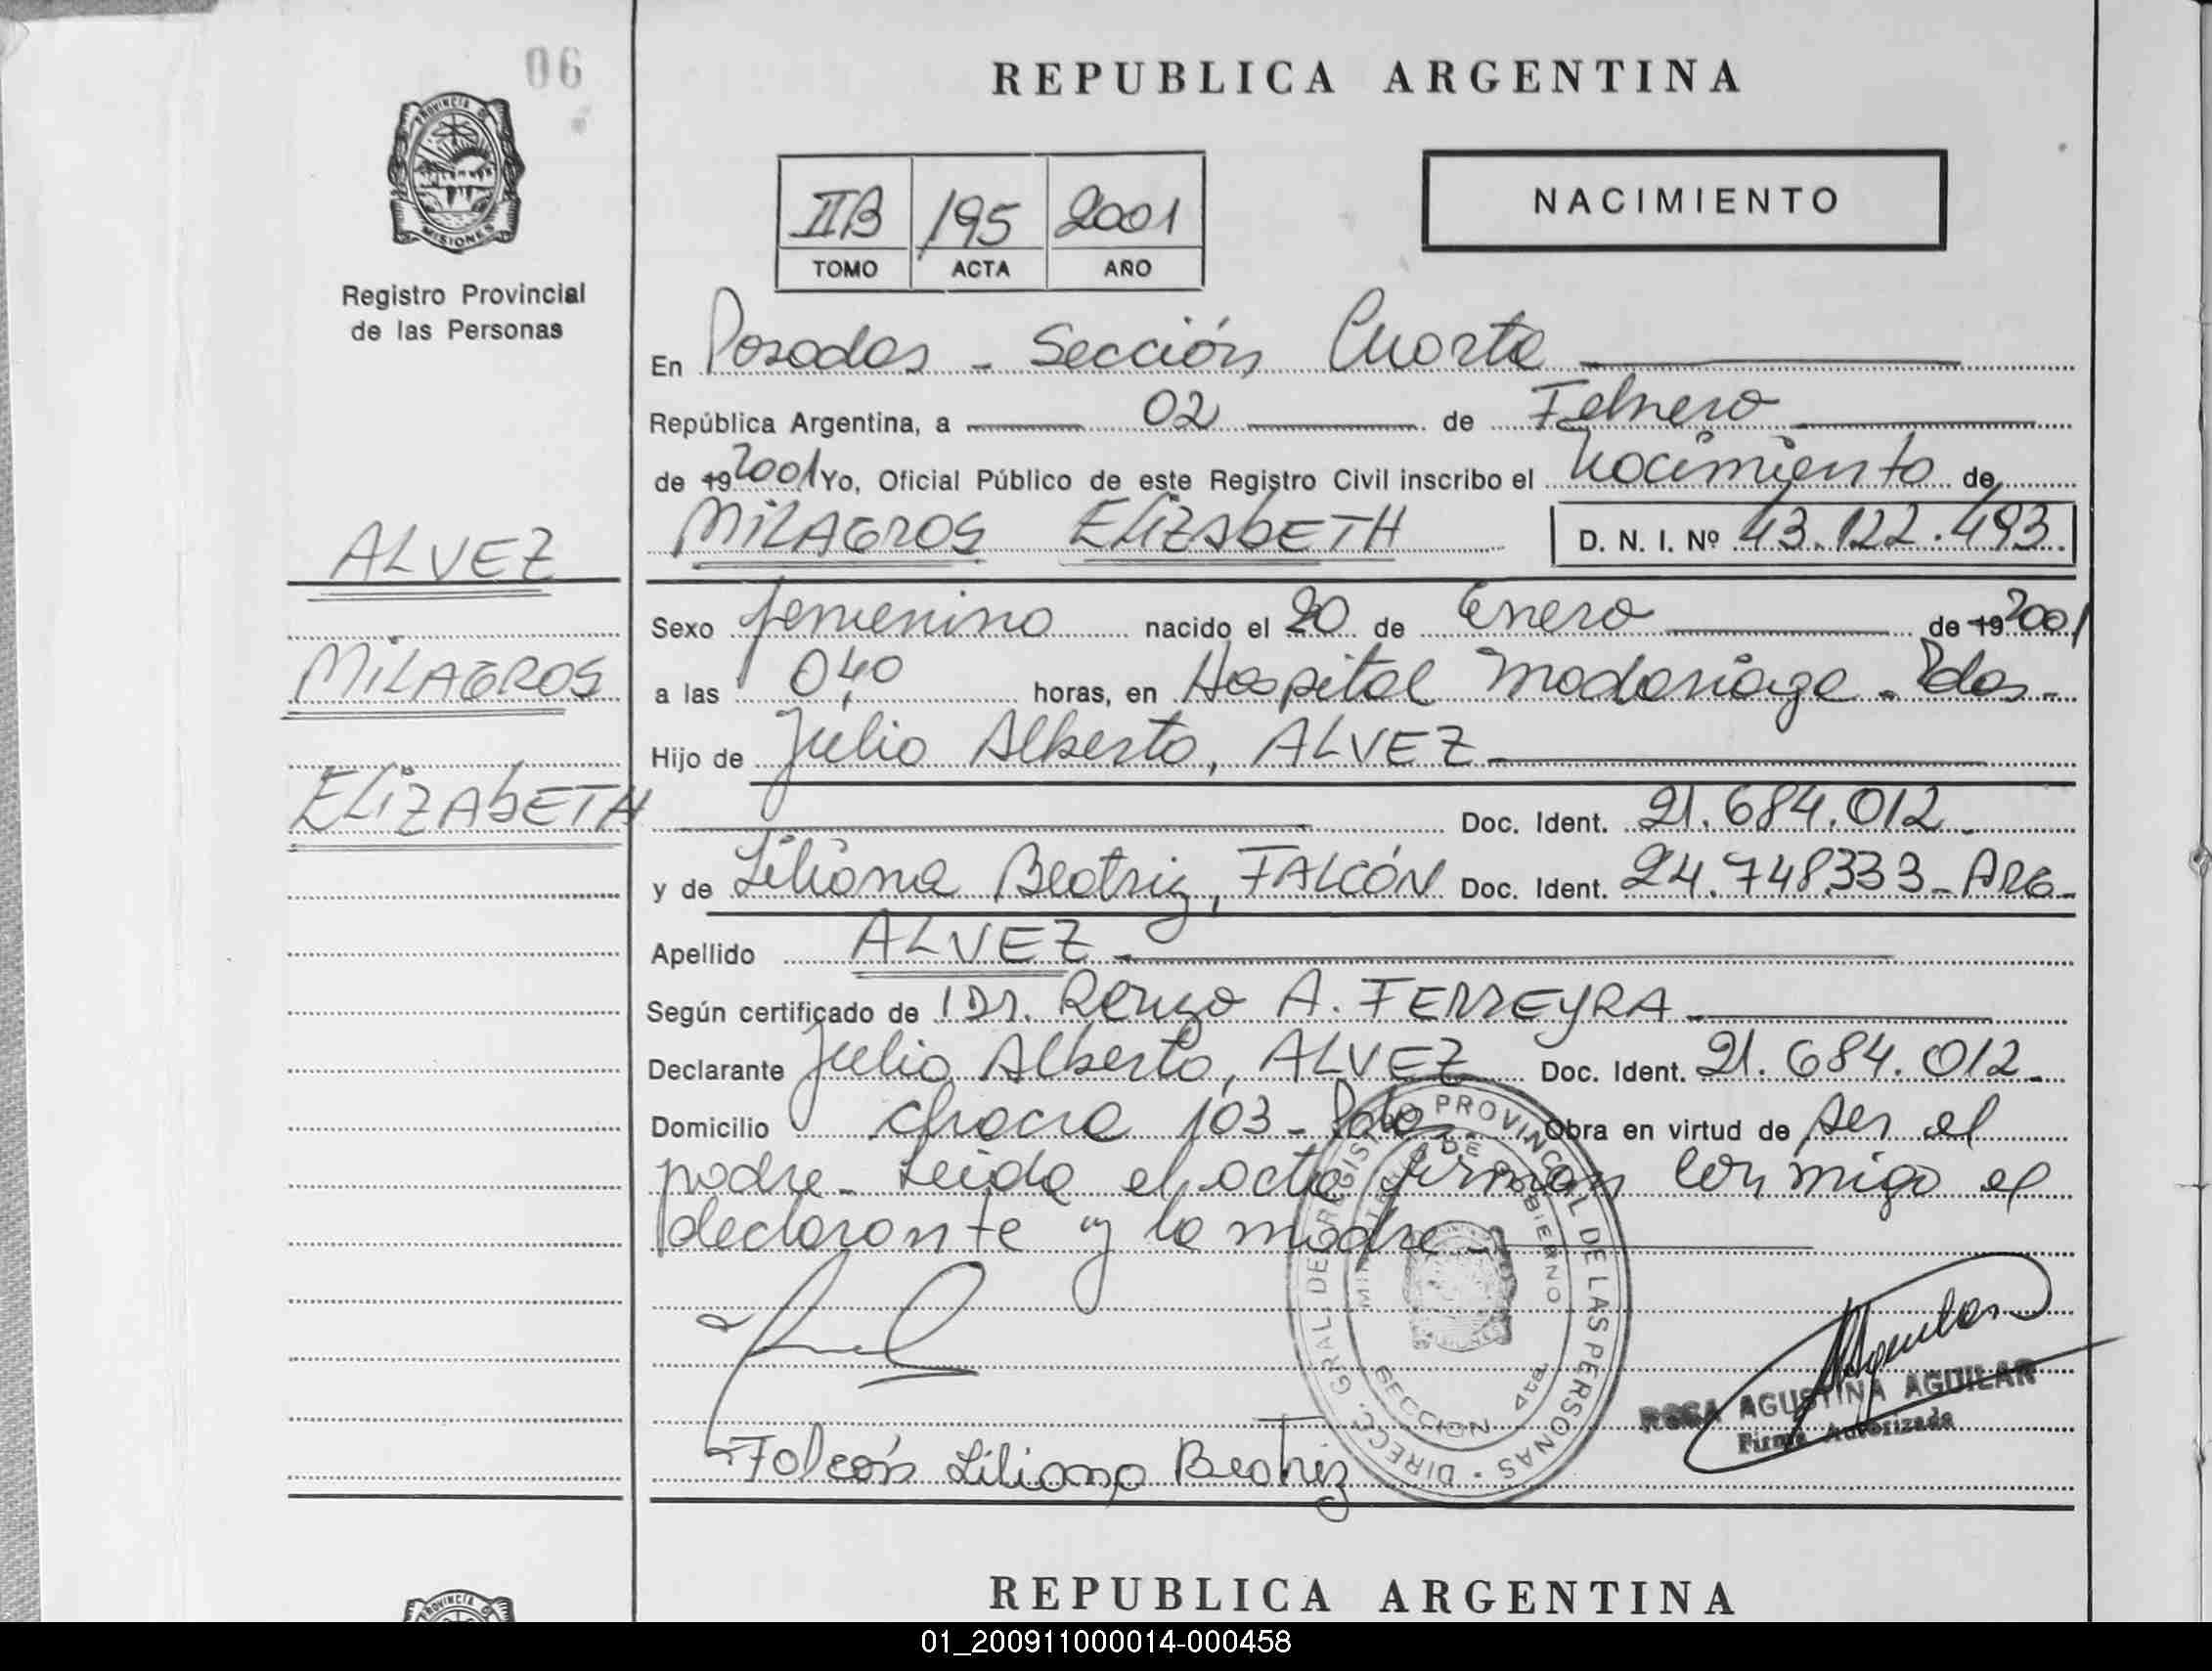 06
REPUBLICA ARGENTINA
PROVINCIA D
MISIONES
Registro Provincial
de las Personas
IIB 195 2001
TOMO ACTA AÑO
NACIMIENTO
En Posadas - Sección Cuarta
República Argentina, a 02 de Febrero
de 19 2001 Yo, Oficial Público de este Registro Civil inscribo el Nacimiento de
MILAGROS ELIZABETH D. N. I. Nº 43.122.493
ALVEZ
MILAGROS
ELIZABETH
Sexo femenino nacido el 20 de Enero de 19 2001
a las 0,40 horas, en Hospital Madariaga - Pdas -
Hijo de Julio Alberto, ALVEZ
Doc. Ident. 21.684.012 -
y de Liliana Beatriz, FALCÓN Doc. Ident. 24.748.333 - ARG -
Apellido ALVEZ
Según certificado de Dr. Renzo A. FERREYRA
Declarante Julio Alberto, ALVEZ Doc. Ident. 21.684.012 -
Domicilio chacra 103 - Pdas Obra en virtud de ser el
padre - Leída el acta firman conmigo el
declarante y la madre -
DIRECC. GRAL. DE REGISTRO PROVINCIAL DE LAS PERSONAS
MINISTERIO DE GOBIERNO
SECCION 4ta.
ROSA AGUSTINA AGUILAR
Firma Autorizada
Falcón Liliana Beatriz
REPUBLICA ARGENTINA
PROVINCIA
01_200911000014-000458